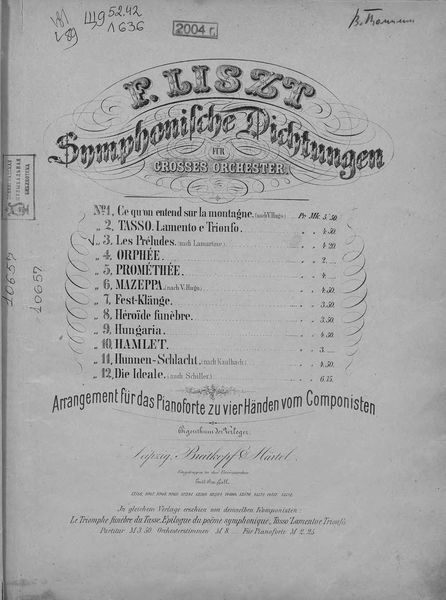 5242
1636
2004 г.
F. LISZT
Symphonische Dichtungen
FÜR
GROSSES ORCHESTER.
No. 1, Ce qu'on entend sur la montagne, (nach V. Hugo.) Pr. Mk. 5.50.
„ 2, TASSO. Lamento e Trionfo. „ „ 4.50.
„ 3, Les Préludes. (nach Lamartine.) „ „ 4.20.
„ 4, ORPHÉE. „ „ 2.
„ 5, PROMÉTHÉE. „ „ 4.
„ 6, MAZEPPA. (nach V. Hugo.) „ „ 4.50.
„ 7, Fest-Klänge. „ „ 3.50.
„ 8, Héroïde funèbre. „ „ 3.50.
„ 9, Hungaria. „ „ 4.50.
„ 10, HAMLET. „ „ 3.
„ 11, Hunnen-Schlacht, (nach Kaulbach.) „ „ 4.50.
„ 12, Die Ideale. (nach Schiller.) „ „ 6.75.
Arrangement für das Pianoforte zu vier Händen vom Componisten
Eigenthum der Verleger.
Leipzig, Breitkopf & Härtel.
Eingetragen in das Vereinsarchiv.
Ent. Sta. Hall.
In gleichem Verlage erschien von demselben Komponisten:
Le Triomphe funèbre du Tasse, Epilogue du poème symphonique „Tasso Lamento e Trionfo
Partitur M 3. 50. Orchesterstimmen M 8. Für Pianoforte M 2. 25
10657
10657